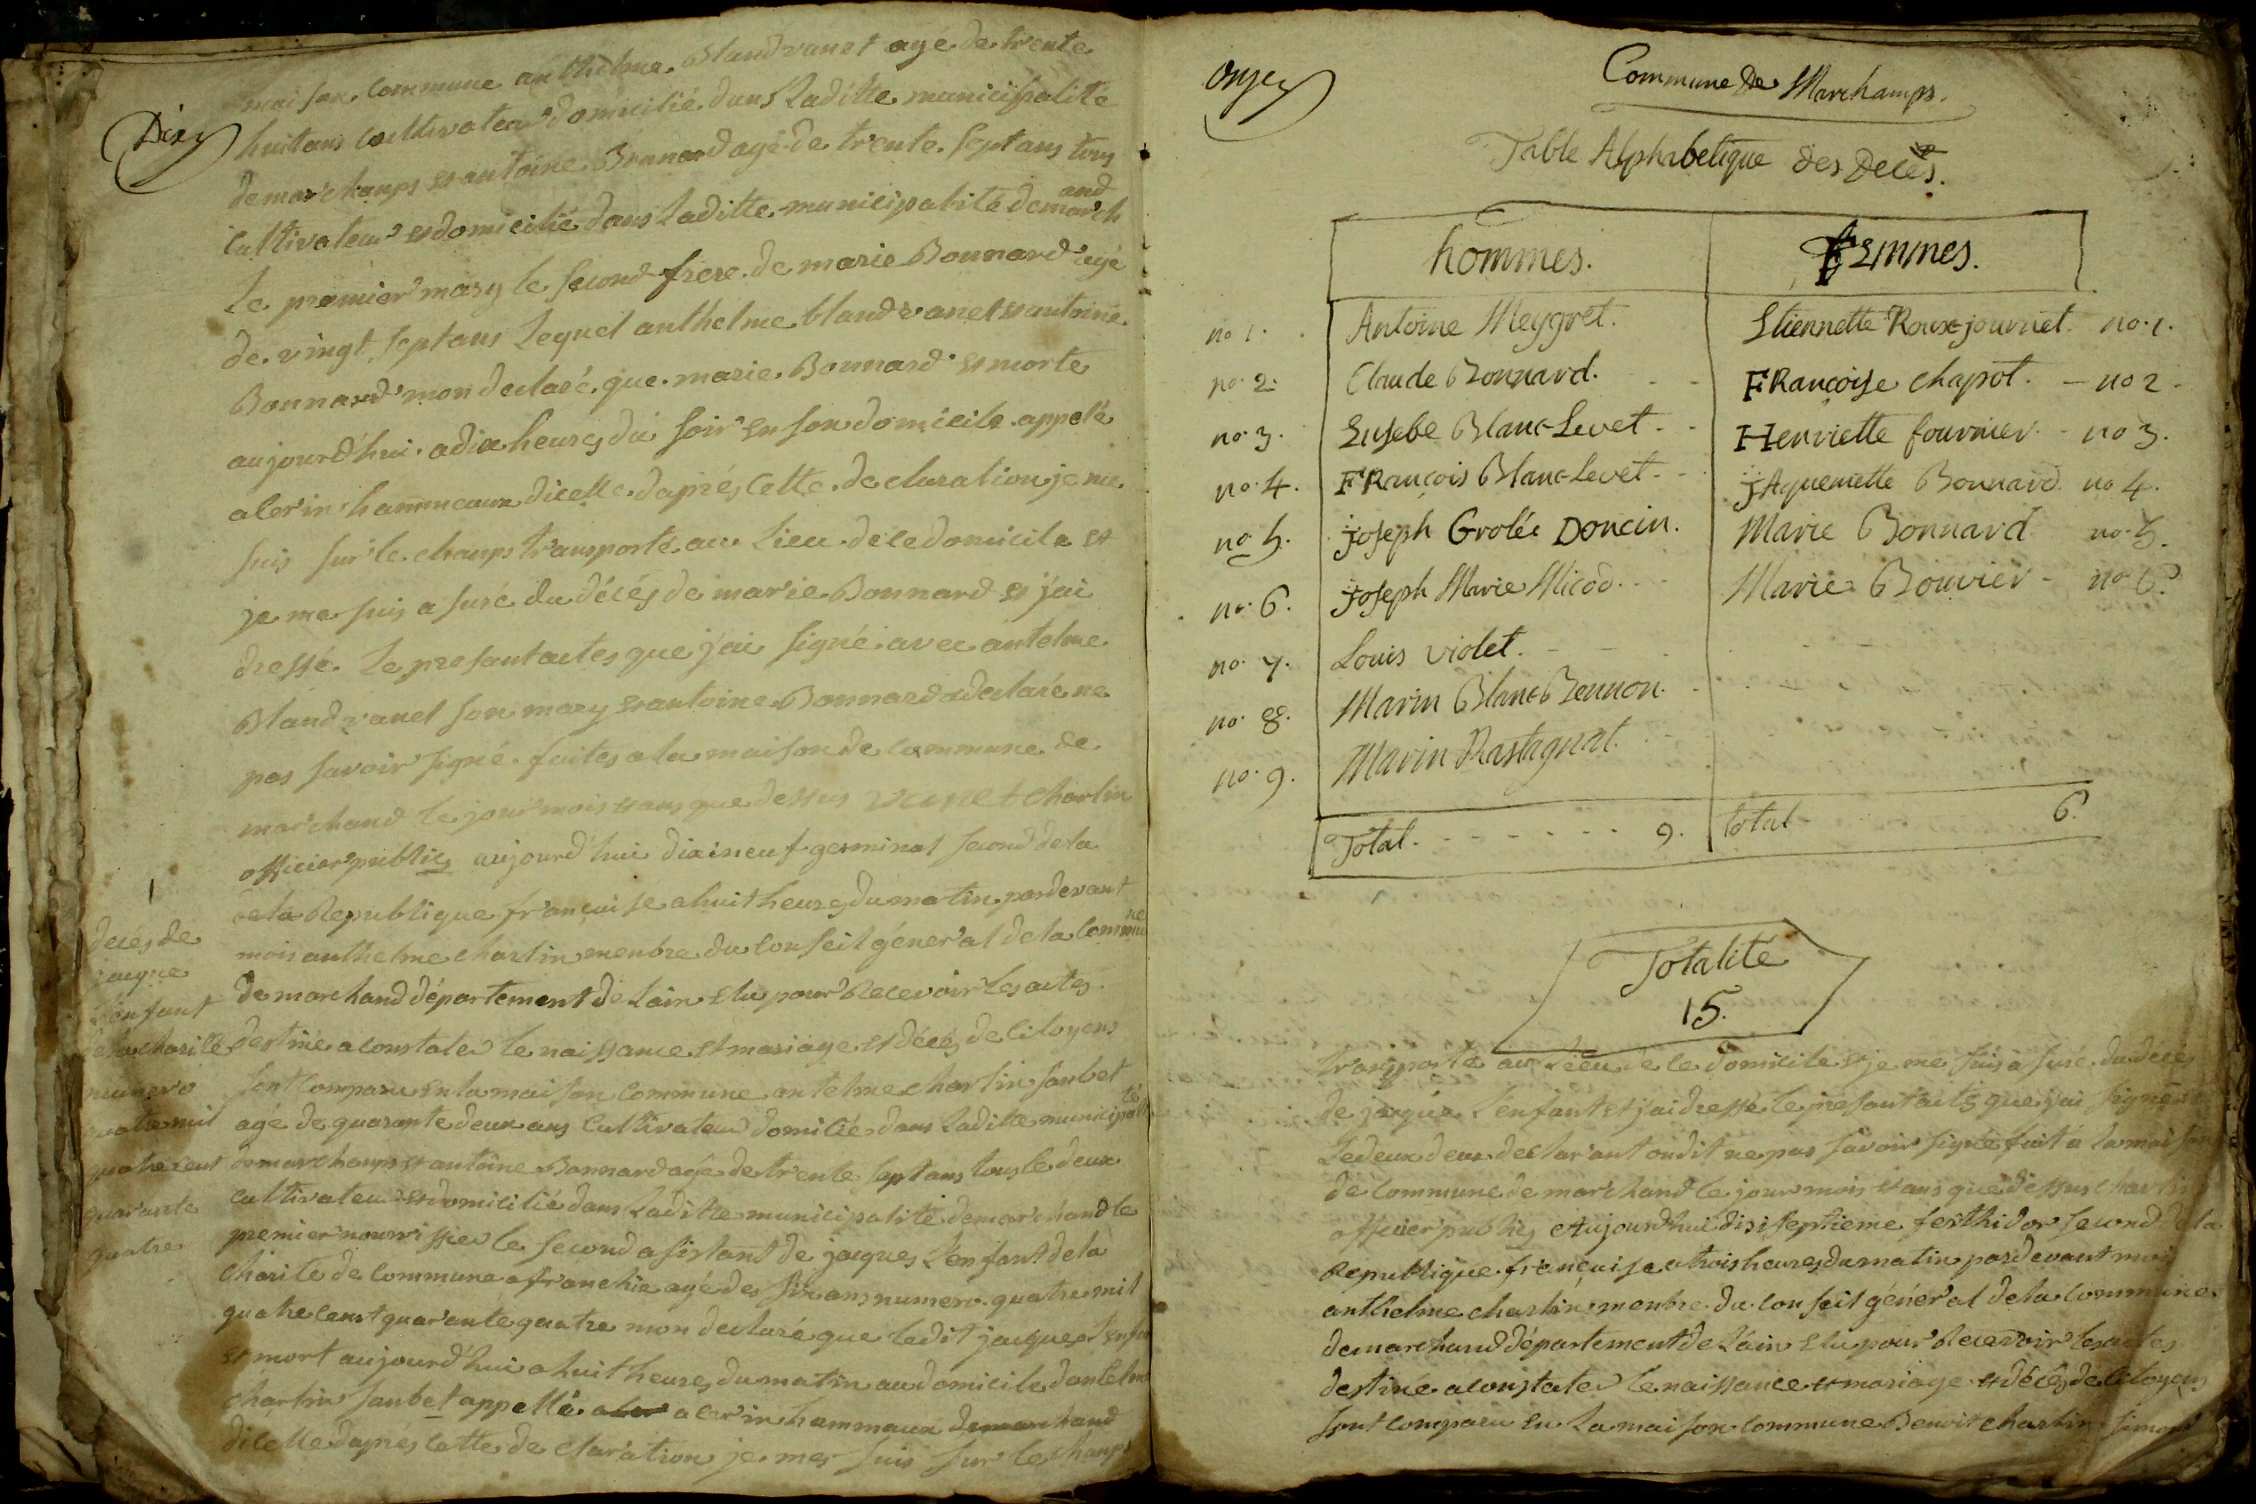 Dix
maison commune anthelme Bland vanet agé de trente
huit ans cultivateur domicilié dans Laditte municipalité
de marchamps et antoine Bonnard agé de trente sept ans tous
cultivateur et domicilié dans Laditte municipalité de marchand
Le premier mary le second frere de marie Bonnard agé
de vingt sept ans Lequel anthelme bland vanet et antoine
Bonnard mon declaré que marie Bonnard et morte
aujourd'hui a dix heures du soir en son domicile appelé
a lerin hammeaux dicelle daprés cette declaration je me
suis sur le champs transporté au Lieu de ce domicile et
je me suis a suré du décés de marie Bonnard et j'ai
dressé Le presant actes que j'ai signé avec antelme
Bland vanet son mary et antoine Bonnard a declaré ne
pas savoir signé faites a la maison de commune de
marchand le jour mois et ans que dessus vanet charlin
officier publics aujourd'hui dixineuf germinal second de la
de la Republique françaisse a huit heures du matin pardevant
mois anthelme charlin menbre du conseil géneral de la commune
de marchand département de Lain elu pour Recevoir les actes
destiné a constater le naissance et mariage et décés de citoyens
sont comparu en la maison commune antelme charlin Janbet
agé de quarante deux ans cultivateur domilié dans Laditte municipalité
de marchamps et antoine Bonnard agé de trente sept ans tous le deux
cultivateur et domicilié dans Laditte municipalité de marchand le
premier nourissier le second asistant de jacques L'enfant de la
charité de commune afranchie agé des six ans numero quatre mil
quatre cent quarante quatre mon declaré que ledit jacques L'enfan
et mort aujourd'hui a huit heures du matin au domicile dantelme
charlin Janbet appellé a lerin hammaux de marchand
dicelle daprés cette declaration je mes suis sur les champs
decés de
jaque
L'enfant
de la charité
numero
quatre mil
quatre cent
quarante
quatre
onze
Commune De Marchamps.
Table Alphabetique des Decès.
hommes. Femmes.
no 1. Antoine Meygret. Etiennette Roux-journet no. 1.
no. 2. Claude Bonnard. FRançoise chapot. no 2.
no. 3. Eusebe Blanc-Levet. Henriette fournier no 3.
no. 4. FRançois Blanc-Levet. jAquemette Bonnard no 4.
no. 5. joseph Grolée Doncin. Marie Bonnard no. 5.
no. 6. joseph Marie Micod. Marie Bouvier no 6.
no. 7. Louis violet.
no. 8. Marin Blanc-Bennon.
no. 9. Marin Rastagnat.
Total. 9. total 6.
Totalité
15.
transporté au Lieu de le domicile et je me suis a suré du decés
de jaque L'enfant et j'ai dressé le presant actes que j'ai signé
Le deux deux declarant on dit ne pas savoir signé fait a la maison
de commune de marchand le jour mois et ans que dessus charlin
officier publics Aujourdhui disisseptieme ferthidor second de la
Republique françaisse a trois heures du matin pardevant moi
anthelme charlin menbre du conseil géneral de la commune
de marchand département de Lain elu pour Recevoir les actes
destiné a constater le naissance et mariage et décés de citoyens
sont comparu en La maison commune Benoit charlin simond